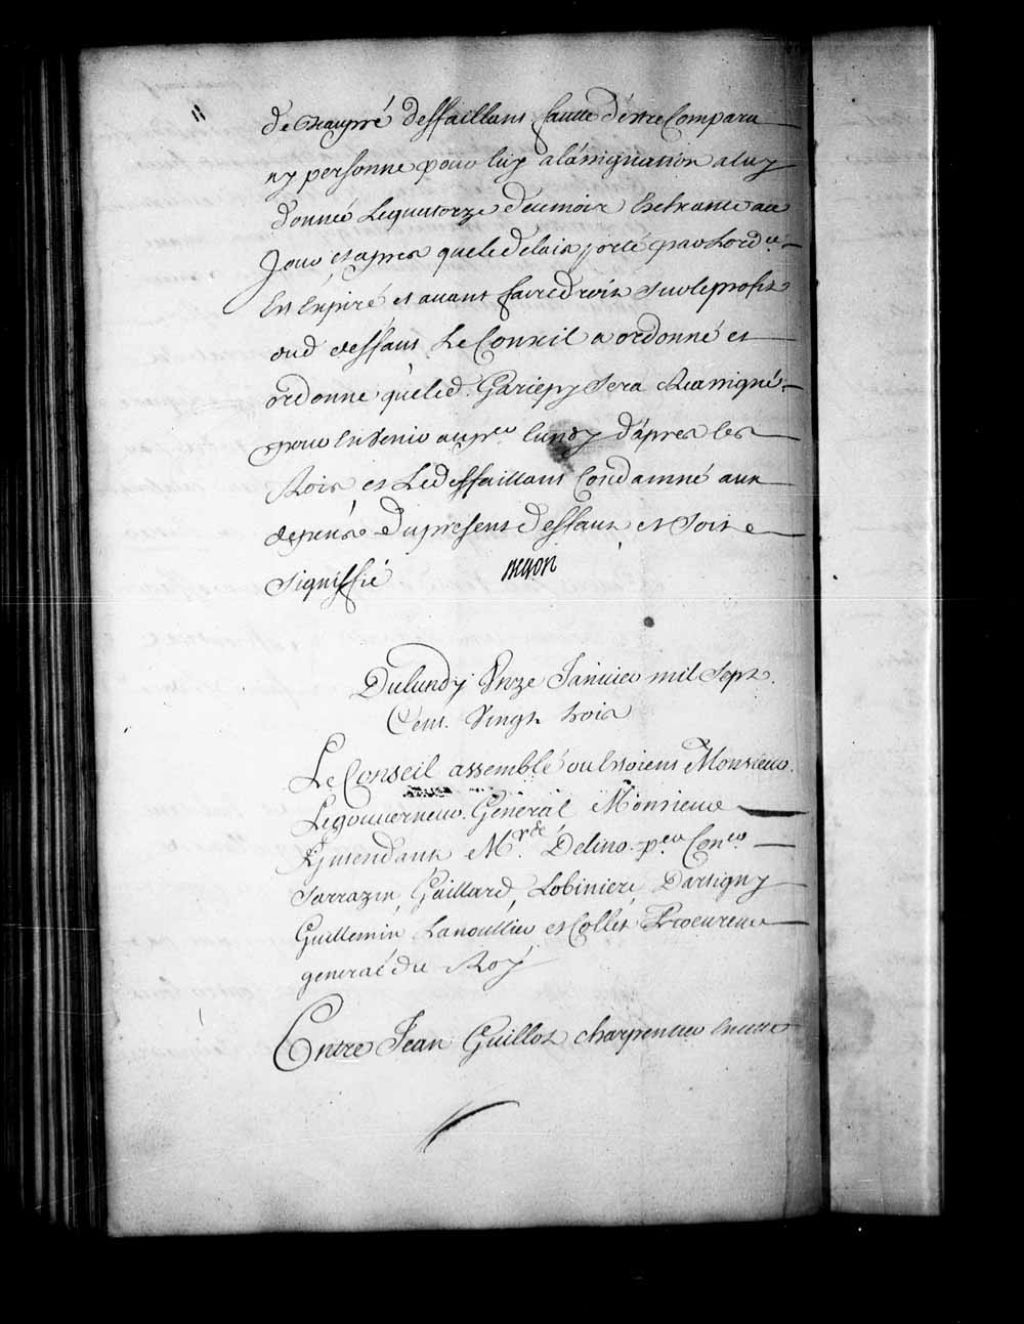 de Beaupré deffaillant faute d'être Comparu
ny personne pour luy a l'assignation a luy
donneé le quatorze decembre Extrante au
Jour et apres que le delais porté par Lord.ce
Est Expiré et avant faire droit sur le profit
dud deffaut Le Conseil a ordonné et
ordonne que led. Gariepy sera Reassigné
pour En Venir au p.er lundy d'apres les
Rois et Le deffaillant Condamné aux
depens du present deffaut et soit
signiffié
Begon
Du lundy Onze Janvier mil Sept
Cent Vingt trois
Le Conseil assemblé ou Estoient Monsieur
Le gouverneur General Monsieur
Lintendant M.r de Delino p.er Con.er
Sarrazin, Gaillard, Lobiniere, Dartigny
Guillemin, Lanoullier et Collet Procureur
general du Roy
Entre Jean Guillot charpentier